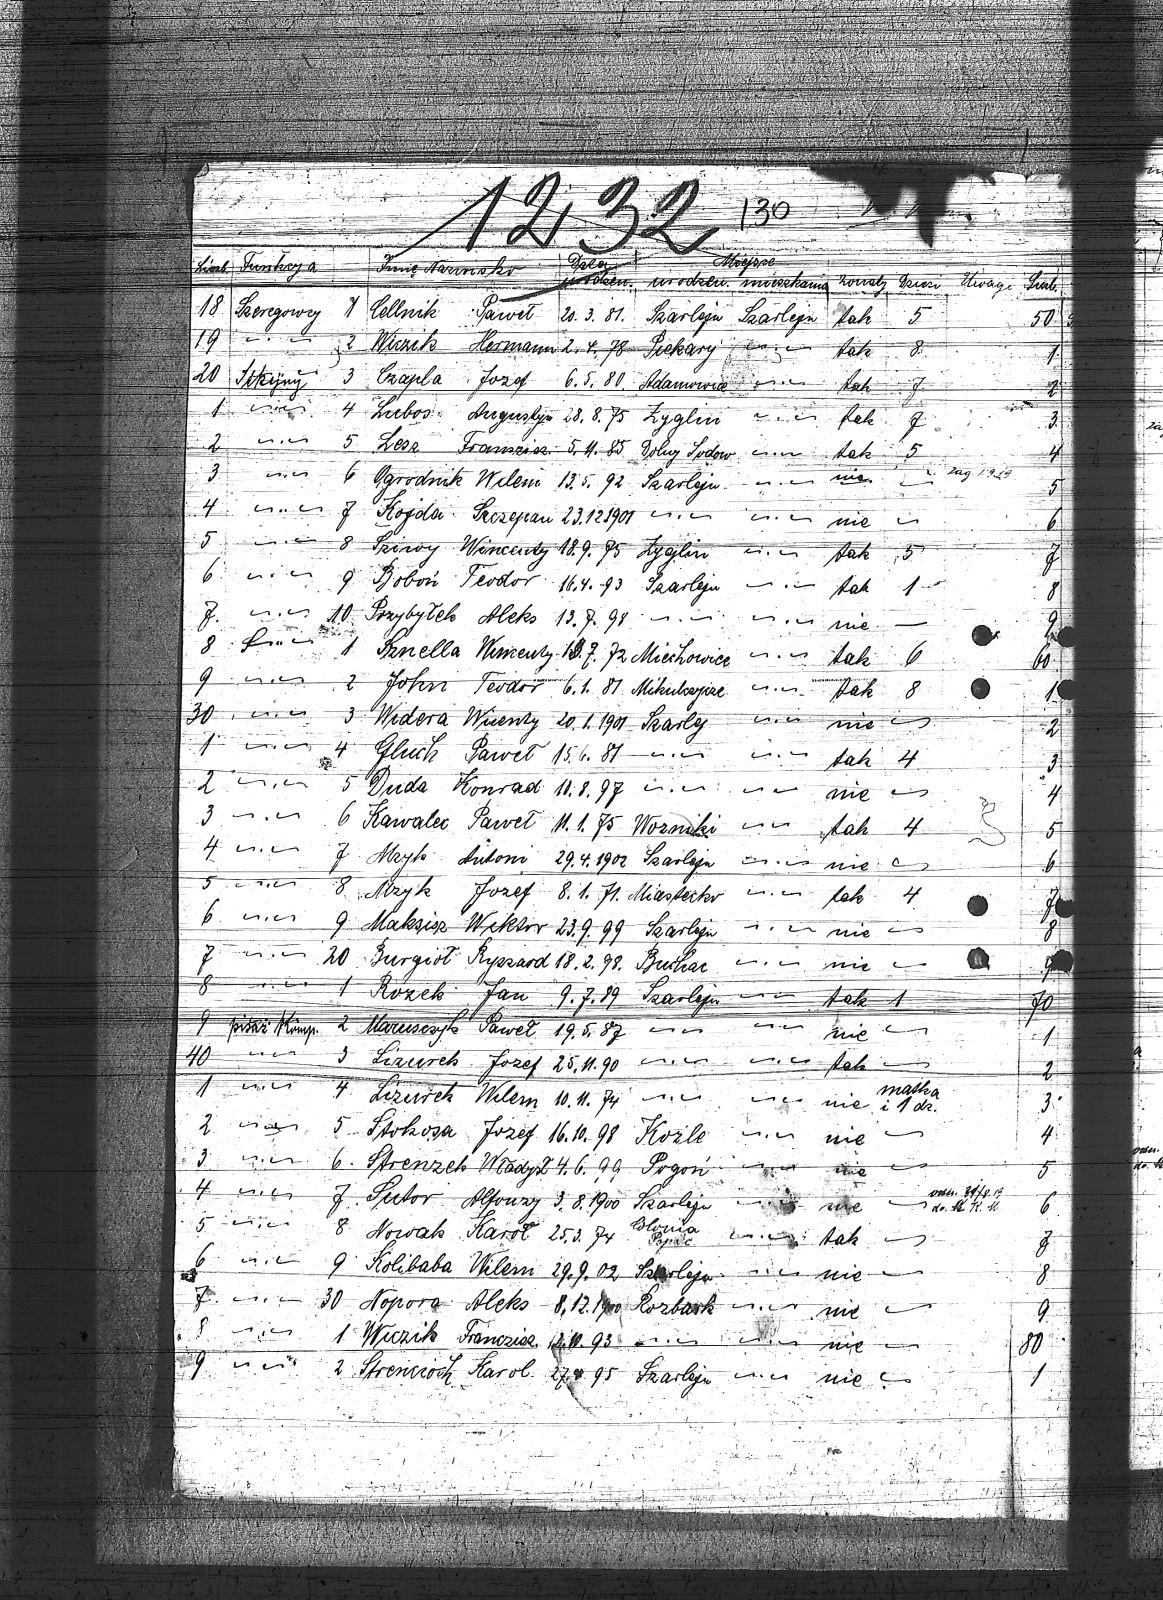 1232 130
Liczb. Funkcya Imię Nazwisko Dzień urodzen. Miejsce
urodzen. mieszkania żonaty Dzieci Uwagi Liczb.
18 Szeregowy 1 Cellnik Paweł 20.3.81. Szarleju Szarleju tak 5 50
19 -"- 2 Wiczik Hermann 2.4.78 Piekary -"- tak 8 1
20 3 Czapla Jozef 6.5.80 Adamowice -"- tak 7 2
1 -"- 4 Lubos Augustyn 28.8.75 Żyglin -"- tak 7 3
2 -"- 5 Lesz Franzisz. 5.11.85 -"- tak 5 4
3 -"- 6 Ogrodnik Wilem 13.5.92 Szarleju -"- nie - 5
4 -"- 7 Kojda Szczepan 23.12.1901 -"- -"- nie - 6
5 -"- 8 Wincenty 18.9.75 Żyglin -"- tak 5 7
6 -"- 9 Boboń Teodor 16.4.93 Szarleju -"- tak 1 8
7. -"- 10 Przybyłek Aleks 13.7.98 -"- -"- nie - 9
8 -"- 1 Sznella Wincenty 18.7.72 Miechowice -"- tak 6 60
9 -"- 2 John Teodor 6.1.81 -"- tak 8 1
30 -"- 3 Widera Wicenty 20.1.1901 Szarlej -"- nie - 2
1 -"- 4 Gluch Paweł 15.6.81 -"- -"- tak 4 3
2 -"- 5 Duda Konrad 10.8.97 -"- -"- nie - 4
3 -"- 6 Kawalec Paweł 11.1.75 Wozniki -"- tak 4 5
4 -"- 7 Mzyk Antoni 29.4.1902 Szarleju -"- nie - 6
5 -"- 8 Mzyk Jozef 8.1.71. Miastecko -"- tak 4 7
6 -"- 9 Maksisz Wiktor 23.9.99 Szarleju -"- nie - 8
7 -"- 20 Burgioł Ryszard 18.2.98. Buchac -"- nie - 9
8 -"- 1 Rozek Jan 9.7.89 Szarleju -"- tak 1 70
9 pisaż Komp. 2 Marusczyk Paweł 19.5.87 -"- -"- nie - 1
40 -"- 3 Lizurek Jozef 25.11.90 -"- -"- tak - 2
1 -"- 4 Lizurek Wilem 10.11.74 -"- -"- nie matka i 1 dz. 3
2 -"- 5 Stokosa Jozef 16.10.98 Kozle -"- nie - 4
3 -"- 6. Strenzek Władysł 4.6.99 Pogoń -"- nie - 5
4 -"- 7 Sutor Alfonzy 3.8.1900 Szarleju -"- nie - 6
5 -"- 8 Nowak Karoł 25.3.74 Błonia -"- tak - 7
6 -"- 9 Kolibaba Wilem 29.9.02 Szarleju -"- nie - 8
7 -"- 30 Nopora Aleks 8.12.1900 Rozbark -"- nie - 9
8 -"- 1 Wiczik Franczisz. 93 -"- -"- nie - 80
9 -"- 2 Strencioch Karol 95 Szarleju -"- nie - 1